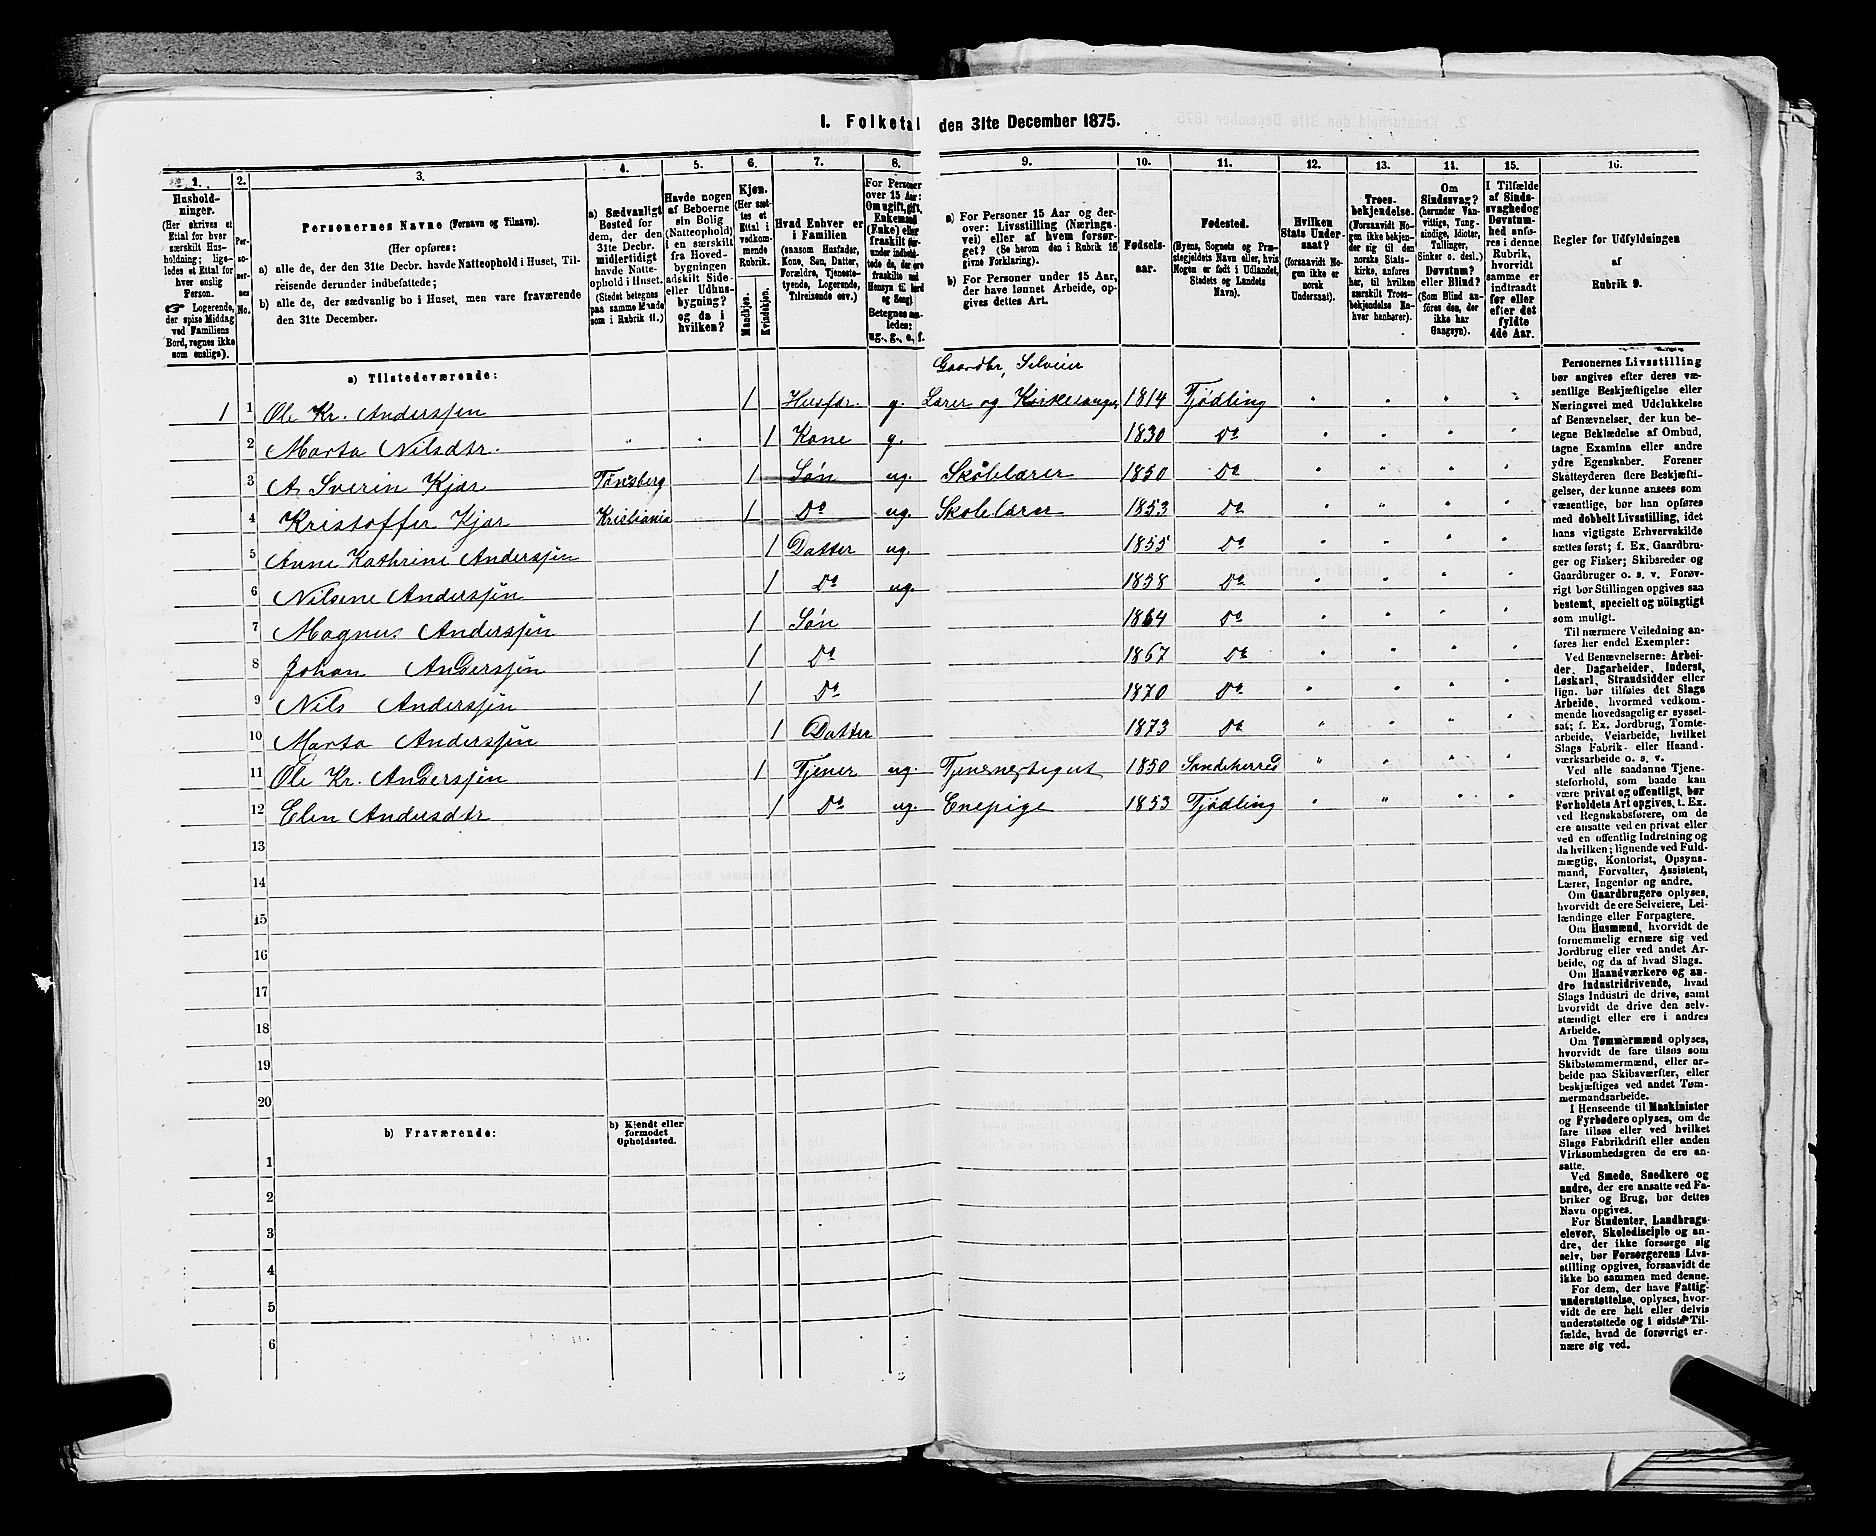 1. Folketal den 31te December 1875.
1. 2. 3. 4. 5. 6. 7. 8. 9. 10. 11. 12. 13. 14. 15. 16.
Hushold-
ninger.
(Her skrives et
Ettal for hver
særskilt Hus-
holdning; lige-
ledes et Ettal for
hver enslig
Person.
☞ Logerende,
der spise Middag
ved Familiens
Bord, regnes ikke
som enslige).
Per-
so-
ner-
nes
No.
Personernes Navne (Fornavn og Tilnavn).
(Her opføres:
a) alle de, der den 31te Decbr. havde Natteophold i Huset, Til-
reisende derunder indbefattede;
b) alle de, der sædvanlig bo i Huset, men vare fraværende
den 31te December.
a) Sædvanligt
Bosted for
dem, der den
31te Decbr.
midlertidigt
havde Natte-
ophold i Huset.
(Stedet betegnes
paa samme Maade
som i Rubrik 11.)
Havde nogen
af Beboerne
sin Bolig
(Natteophold)
i en særskilt
fra Hoved-
bygningen
adskilt Side-
eller Udhus-
bygning?
og da i
hvilken?
Kjøn.
(Her sæt-
tes et
Ettal i
vedkom-
mende
Rubrik.
Mandkjøn.
Kvindekjøn.
Hvad Enhver er
i Familien
(saasom Husfader,
Kone, Søn, Datter,
Forældre, Tjeneste-
tyende, Logerende,
Tilreisende osv.)
For Personer
over 15 Aar:
Om ugift, gift,
Enkemand
(Enke) eller
fraskilt
Betegnes saa-
ledes:
ug., g., e., f.
a) For Personer 15 Aar og der-
over: Livsstilling (Nærings-
vei) eller af hvem forsør-
get? (Se herom den i Rubrik 16
givne Forklaring).
b) For Personer under 15 Aar,
der have lønnet Arbeide, op-
gives dettes Art.
Fødsels-
aar.
Fødested.
(Byens, Sognets og Præ-
stegjeldets Navn eller, hvis
Nogen er født i Udlandet,
Stedets og Landets
Navn).
Hvilken
Stats Under-
saat?
(forsaavidt No-
gen ikke er
norsk
Undersaat).
Troes-
bekjendelse.
(Forsaavidt No-
gen ikke bekjen-
der sig til den
norske Stats-
kirke, anføres
her, til hvilken
særskilt Troes-
bekjendelse En-
hver henhører).
Om
Sindssvag?
(herunder Van-
vittige, Tung-
sindige, Idioter,
Tullinger,
Sinker o. desl.)
Døvstum?
eller Blind?
(Som Blind an-
føres den, der
ikke har
Gangsyn).
I Tilfælde
af Sinds-
svaghed og
Døvstum-
hed anfø-
res i denne
Rubrik,
hvorvidt
samme er
indtraadt
før eller
efter det
fyldte
4de Aar.
Regler for Udfyldningen
af
Rubrik 9.
a) Tilstedeværende:
Gaardbr, Selveier
1 1 Ole Kr. Anderssen 1 Husfar. g. Lærer og Kirkesanger 1814 Tjødling
2 Marta Nilsdtr. 1 Kone g. 1830 Do
3 A. Sverin Kjær Tønsberg 1 Søn ug. Skolelærer 1850 Do
4 Kristoffer Kjær Kristiania 1 Do ug. Skolelærer 1853 Do
5 Anne Kathrine Anderssen 1 Datter ug. 1855 Do
6 Nilsine Anderssen 1 Do ug. 1858 Do
7 Magnus Anderssen 1 Søn 1864 Do
8 Johan Anderssen 1 Do 1867 Do
9 Nils Anderssen 1 Do 1870 Do
10 Marta Anderssen 1 Datter 1873 Do
11 Ole Kr. Anderssen 1 Tjener ug. 1850 Sandeherred
12 Elen Andersdtr 1 Do ug. Enepige 1853 Tjødling
13
14
15
16
17
18
19
20
b) Fraværende:
b) Kjendt eller
formodet
Opholdssted.
1
2
3
4
5
6
Personernes Livsstilling
bør angives efter deres væ-
sentlige Beskjæftigelse eller
Næringsvei med Udelukkelse
af Benævnelser, der kun be-
tegne Beklædelse af Ombud,
tagne Examina eller andre
ydre Egenskaber. Forener
Skatteyderen flere Beskjæfti-
gelser, der kunne ansees som
væsentlige, bør han opføres
med dobbelt Livsstilling, idet
hans vigtigste Erhvervskilde
sættes først; f. Ex. Gaardbru-
ger og Fisker; Skibsreder og
Gaardbruger o. s. v. Forøv-
rigt bør Stillingen opgives saa
bestemt, specielt og nøiagtigt
som muligt.
Til nærmere Veiledning an-
føres her endel Exempler:
Ved Benævnelserne: Arbei-
der, Dagarbeider, Inderst,
Løskarl, Strandsidder eller
lign. bør tilføies det Slags
Arbeide, hvormed vedkom-
mende hovedsagelig er syssel-
sat; f. Ex. Jordbrug, Tomte-
arbeide, Veiarbeide, hvilket
Slags Fabrik- eller Haand-
værksarbeide o. s. v.
Ved alle saadanne Tjene-
steforhold, som baade kan
være privat og offentligt, bør
Forholdets Art opgives, t. Ex.
ved Regnskabsførere, om de
ere ansatte ved en privat eller
ved en offentlig Indretning og
da hvilken; lignende ved Fuld-
mægtig, Kontorist, Opsyns-
mand, Forvalter, Assistent,
Lærer, Ingeniør og andre.
Om Gaardbrugere oplyses,
hvorvidt de ere Selveiere, Lei-
lændinge eller Forpagtere.
Om Husmænd, hvorvidt de
fornemmelig ernære sig ved
Jordbrug eller ved andet Ar-
beide, og da af hvad Slags.
Om Haandværkere og an-
dre Industridrivende, hvad
Slags Industri de drive, samt
hvorvidt de drive den selv-
stændigt eller ere i andres
Arbeide.
Om Tømmermænd oplyses,
hvorvidt de fare tilsøs som
Skibstømmermænd, eller ar-
beide paa Skibsværfter, eller
beskjæftiges ved andet Tøm-
mermandsarbeide.
I Henseende til Maskinister
og Fyrbødere oplyses, om de
fare tilsøs eller ved hvilket
Slags Fabrikdrift eller anden
Virksomhedsgren de ere an-
satte.
Ved Smede, Snedkere og
andre, der ere ansatte ved Fa-
briker og Brug, bør dettes
Navn opgives.
For Studenter, Landbrugs-
elever, Skoledisciple og an-
dre, der ikke forsørge sig
selv, bør Forsørgerens Livs-
stilling opgives, forsaavidt de
ikke bo sammen med denne.
For dem, der have Fattig-
understøttelse, oplyses, hvor-
vidt de ere helt eller delvis
understøttede og i sidste Til-
fælde, hvad de forøvrigt er-
nære sig ved.